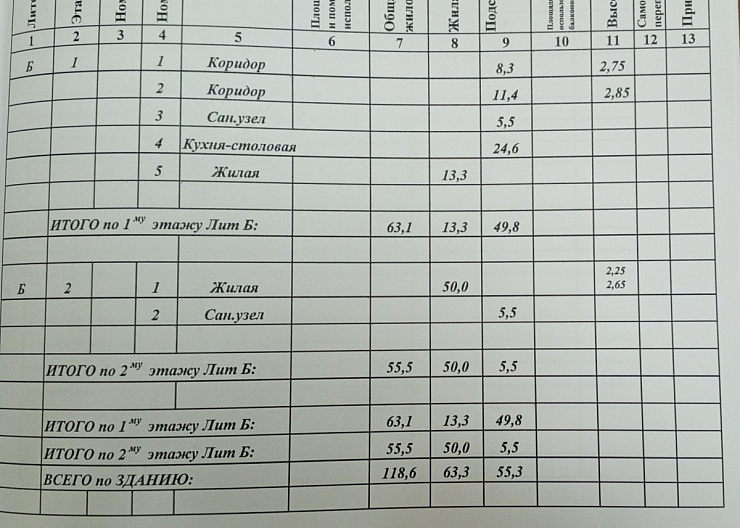 1 2 3 4 5 6 7 8 9 10 11 12 13
Б 1 1 Коридор 8,3 2,75
2 Коридор 11,4 2,85
3 Сан.узел 5,5
4 Кухня-столовая 24,6
5 Жилая 13,3
ИТОГО по 1 му этажу Лит Б: 63,1 13,3 49,8
2,25
Б 2 1 Жилая 50,0 2,65
2 Сан.узел 5,5
ИТОГО по 2 му этажу Лит Б: 55,5 50,0 5,5
ИТОГО по 1 му этажу Лит Б: 63,1 13,3 49,8
ИТОГО по 2 му этажу Лит Б: 55,5 50,0 5,5
ВСЕГО по ЗДАНИЮ: 118,6 63,3 55,3